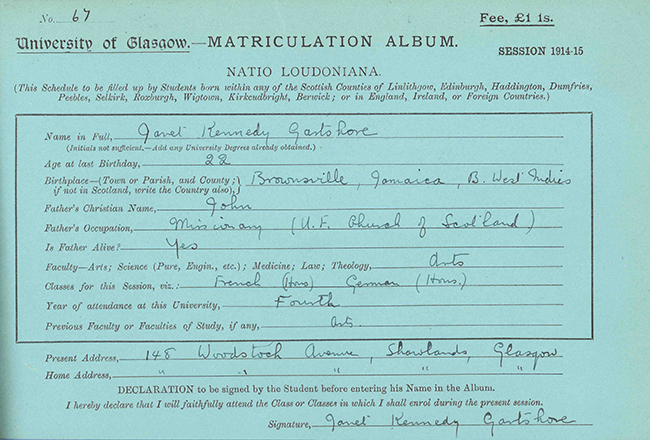 No. 67
Fee, £1 1s.
University of Glasgow.—MATRICULATION ALBUM.
SESSION 1914-15
NATIO LOUDONIANA.
(This Schedule to be filled up by Students born within any of the Scottish Counties of Linlithgow, Edinburgh, Haddington, Dumfries,
Peebles, Selkirk, Roxburgh, Wigtown, Kirkcudbright, Berwick; or in England, Ireland, or Foreign Countries.)
Name in Full, Janet Kennedy Gartshore
(Initials not sufficient.—Add any University Degrees already obtained.)
Age at last Birthday, 22
Birthplace—(Town or Parish, and County; if not in Scotland, write the Country also), Brownsville, Jamaica, B. West Indies
Father's Christian Name, John
Father's Occupation, Missionary (U.F. Church of Scotland)
Is Father Alive? Yes
Faculty—Arts; Science (Pure, Engin., etc.); Medicine; Law; Theology, Arts
Classes for this Session, viz.: French (Hons) German (Hons.)
Year of attendance at this University, Fourth
Previous Faculty or Faculties of Study, if any, Arts.
Present Address, 148 Woodstock Avenue, Shawlands, Glasgow
Home Address, " " " " "
DECLARATION to be signed by the Student before entering his Name in the Album.
I hereby declare that I will faithfully attend the Class or Classes in which I shall enrol during the present session.
Signature, Janet Kennedy Gartshore